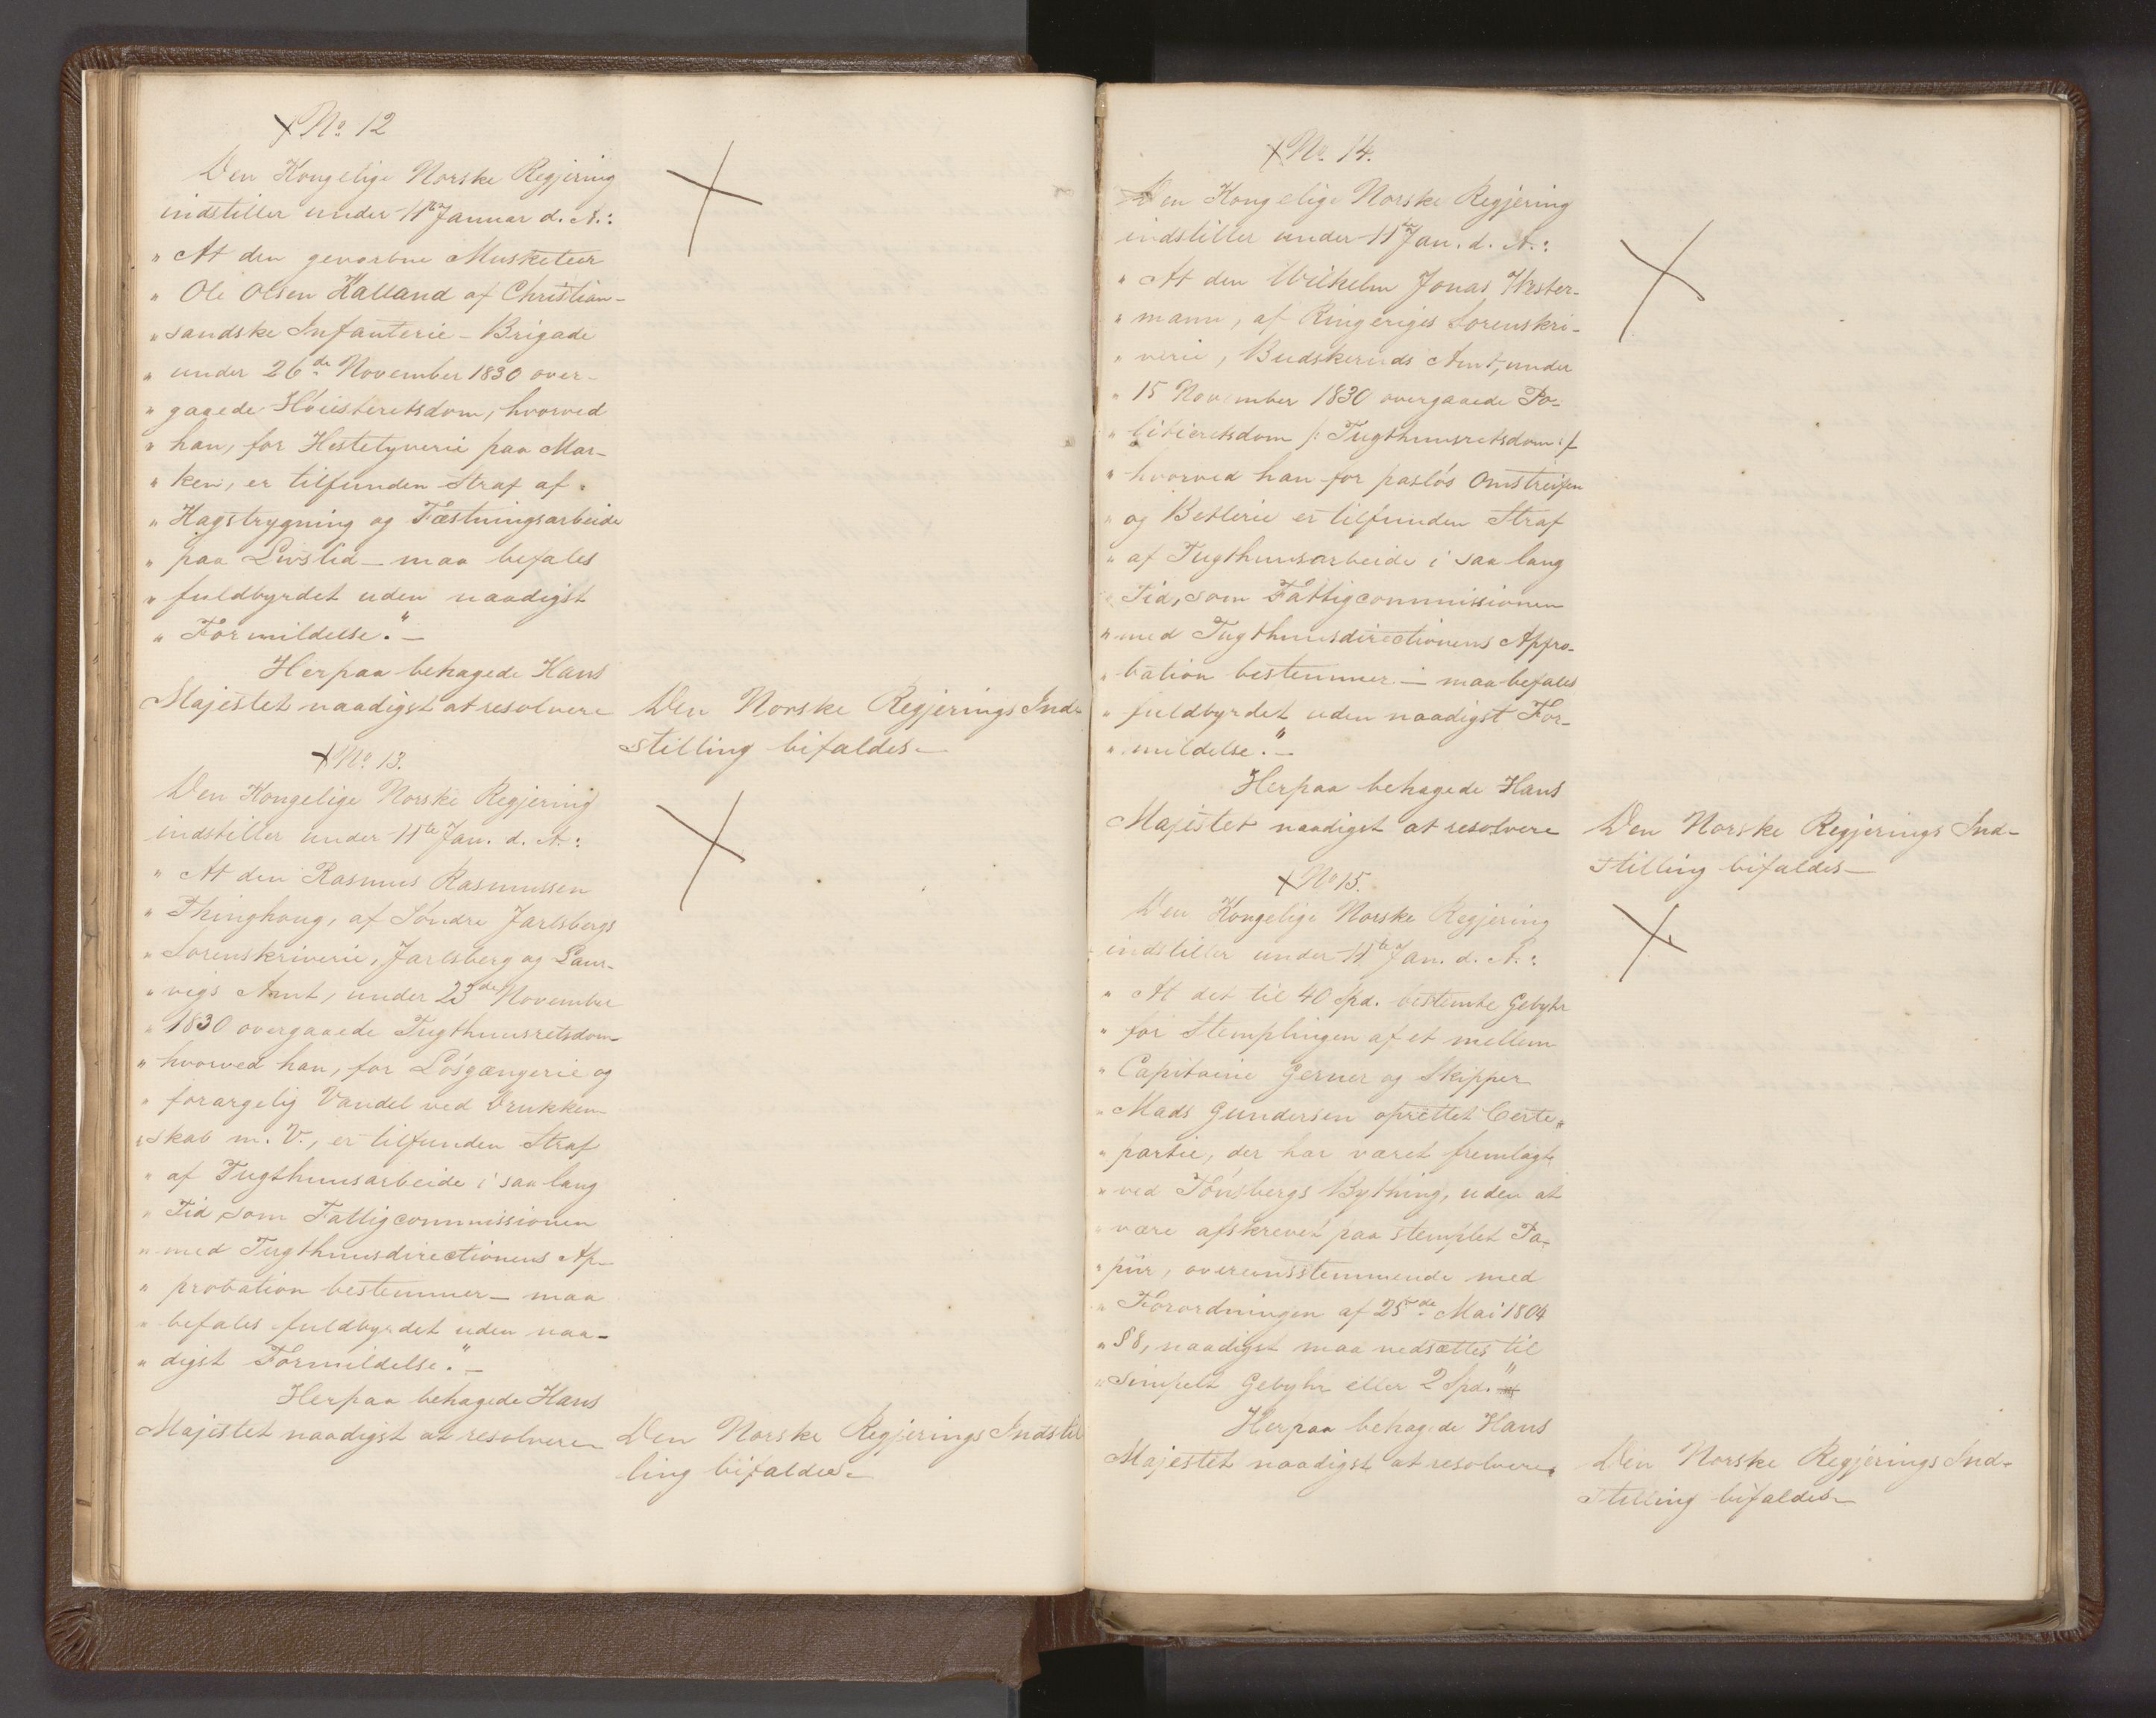 No 12
Den Kongelige Norske Regjering
indstiller under 11te Januar d. A.:
" At den gevorbne Musketeer
" Ole Olsen Kalland af Christian-
" sandske Infanterie-Brigade
" under 26de November 1830 over-
" gagede Höiesteretsdom, hvorved
" han, for Hestetyverie paa Mar-
" ken, er tilfunden Straf af
" Hagstrygning og Fæstningsarbeide
" paa Livstid - maa befales
" fuldbyrdet uden naadigst
" Formildelse." -
Herpaa behagede Hans
Majestet naadigst at resolvere
Den Norske Regjerings Ind-
stilling bifaldes -
No 13.
Den Kongelige Norske Regjering
indstiller under 11te Jan. d. A:
" At den Rasmus Rasmussen
" Thinghoug, af Söndre Jarlsbergs
" Sorenskriverie, Jarlsberg og Laur-
" vigs Amt, under 23de November
" 1830 overgaaede Tugthuusretsdom
" hvorved han, for Lösgængerie og
" forargelig Vandel ved Drukken-
" skab m. V., er tilfunden Straf
" af Tugthuusarbeide i saa lang
" Tid, som Fattigcommissionen
" med Tugthuusdirectionens Ap-
" probation bestemmer - maa
" befales fuldbyrdet uden naa-
" digst Formildelse." -
Herpaa behagede Hans
Majestet naadigst at resolvere
Den Norske Regjerings Indstil
ling bifaldes -
No 14.
Den Kongelige Norske Regjering
indstiller under 11te Jan. d. A.:
" At den Wilhelm Jonas Wester-
" mann, af Ringeriges Sorenskri-
" verie, Budskeruds Amt, under
" 15 November 1830 overgaaede Po-
" litieretsdom /: Tugthuusretsdom :/
" hvorved han for paslös Omstreifen
" og Betlerie er tilfunden Straf
" af Tugthuusarbeide i saa lang
" Tid, som Fattigcommissionen
" med Tugthuusdirectionens Appro-
" bation bestemmer - maa befales
" fuldbyrdet uden naadigst For-
" mildelse." -
Herpaa behagede Hans
Majestet naadigst at resolvere
Den Norske Regjerings Ind-
stilling bifaldes -
No 15.
Den Kongelige Norske Regjering
indstiller under 11te Jan. d. A.:
" At det til 40 Spd. bestemte Gebyhr
" for Stemplingen af et mellem
" Capitaine Gerner og Skipper
" Mads Gundersen oprettet Certe-
" partie, der har været fremlagt
" ved Tönsbergs Bything, uden at
" være afskrevet paa stemplet Pa-
" piir, overeensstemmende med
" Forordningen af 25de Mai 1804
" § 8, naadigst maa nedsættes til
" simpelt Gebyhr eller 2 Spd."
Herpaa behagede Hans
Majestet naadigst at resolvere
Den Norske Regjerings Ind-
stilling bifaldes -